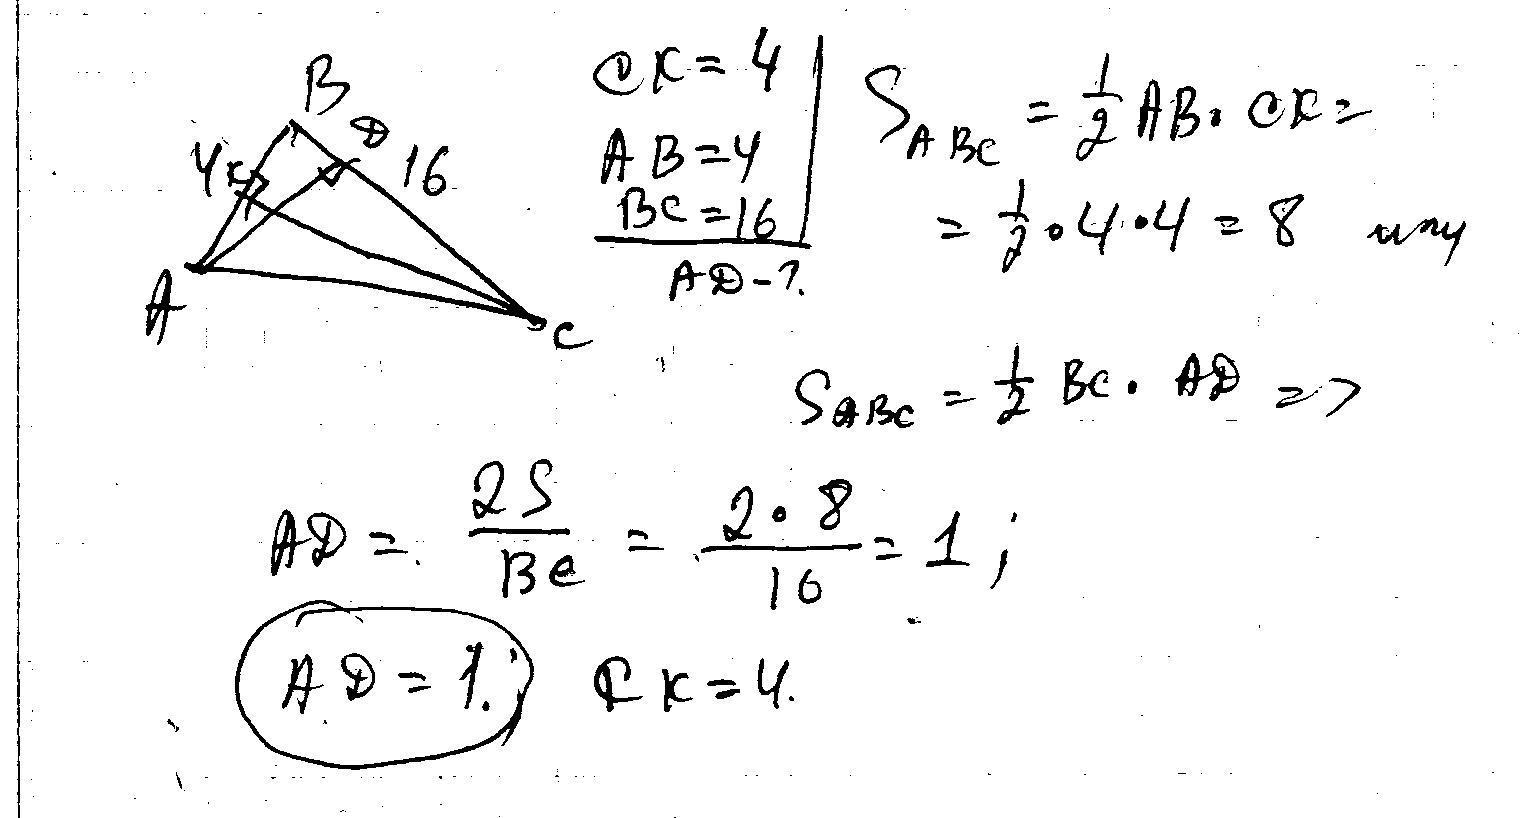 B
D
4 K 16
A
C
CK = 4
AB = 4
BC = 16
AD - ?
S ABC = 1/2 AB · CK =
= 1/2 · 4 · 4 = 8
S ABC = 1/2 BC · AD =>
AD = 2S/BC = 2 · 8/16 = 1;
AD = 1. CK = 4.